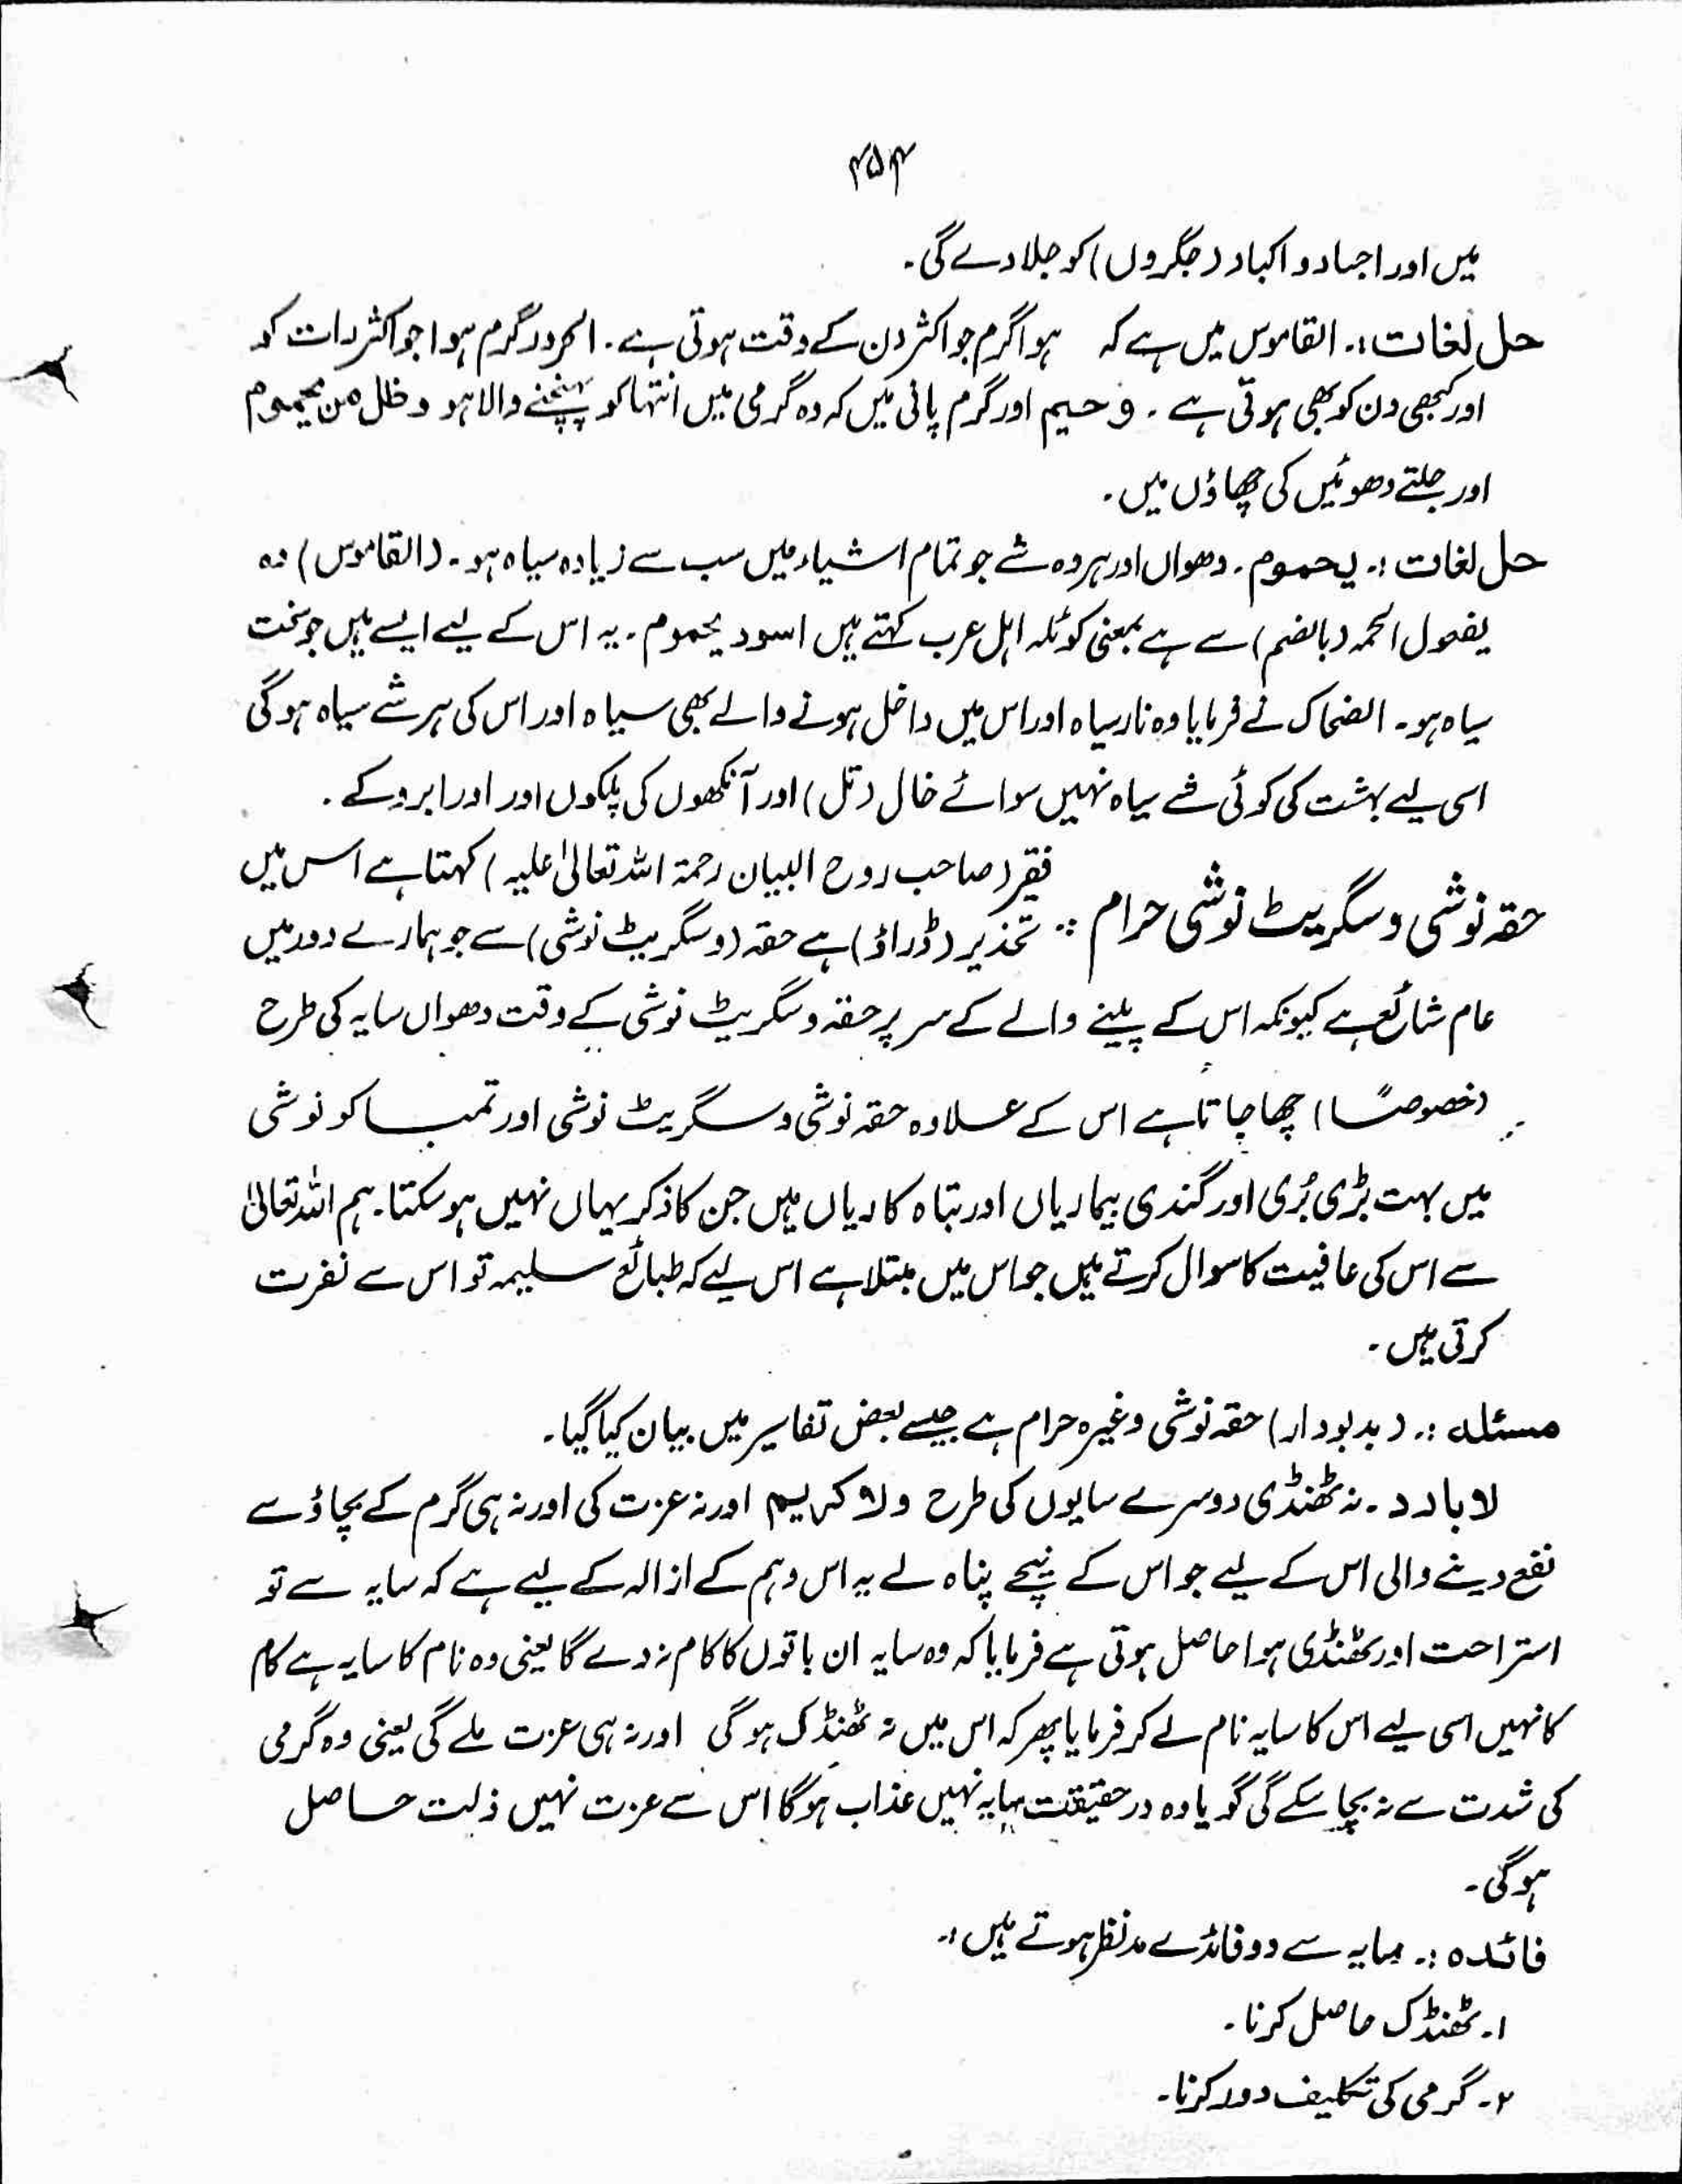 ۴۵۴
میں اور اجساد و اکباد (جگروں) کو جلا دے گی۔
حل لغات :۔ القاموس میں ہے کہ ہوا گرم جو اکثر دن کے وقت ہوتی ہے۔ الحرور گرم ہوا جو اکثر رات کو
اور کبھی دن کو بھی ہوتی ہے۔ وحمیم اور گرم پانی میں کہ وہ گرمی میں انتہا کو پہنچنے والا ہو وظل من یحموم
اور جلتے دھوئیں کی چھاؤں میں۔
حل لغات :۔ یحموم۔ دھواں اور ہر وہ شے جو تمام اشیاء میں سب سے زیادہ سیاہ ہو۔ (القاموس) وہ
یفعول الحمہ (بالضم) سے ہے بمعنی کوئلہ اہل عرب کہتے ہیں اسود یحموم۔ یہ اس کے لیے ایسے ہیں جو سخت
سیاہ ہو۔ الضحاک نے فرمایا وہ نار سیاہ اور اس میں داخل ہونے والے بھی سیاہ اور اس کی ہر شے سیاہ ہوگی
اسی لیے بہشت کی کوئی شے سیاہ نہیں سوائے خال (تل) اور آنکھوں کی پلکوں اور اور ابرو کے۔
فقیر (صاحب روح البیان رحمۃ اللہ تعالیٰ علیہ) کہتا ہے اس میں
حقہ نوشی و سگریٹ نوشی حرام :: تحذیر (ڈراؤ) ہے حقہ (و سگریٹ نوشی) سے جو ہمارے دور میں
عام شائع ہے کیونکہ اس کے پینے والے کے سر پر حقہ و سگریٹ نوشی کے وقت دھواں سایہ کی طرح
(خصوصًا) چھا جاتا ہے اس کے علاوہ حقہ نوشی و سگریٹ نوشی اور تمباکو نوشی
میں بہت بڑی بُری اور گندی بیماریاں اور تباہ کاریاں ہیں جن کا ذکر یہاں نہیں ہو سکتا۔ ہم اللہ تعالیٰ
سے اس کی عافیت کا سوال کرتے ہیں جو اس میں مبتلا ہے اس لیے کہ طبائع سلیمہ تو اس سے نفرت
کرتی ہیں۔
مسئلہ :۔ (بدبودار) حقہ نوشی وغیرہ حرام ہے جیسے بعض تفاسیر میں بیان کیا گیا۔
لا بارد۔ نہ ٹھنڈی دوسرے سایوں کی طرح ولا کریم اور نہ عزت کی اور نہ ہی گرم کے بچاؤ سے
نفع دینے والی اس کے لیے جو اس کے نیچے پناہ لے یہ اس وہم کے ازالہ کے لیے ہے کہ سایہ سے تو
استراحت اور ٹھنڈی ہوا حاصل ہوتی ہے فرمایا کہ وہ سایہ ان باتوں کا کام نہ دے گا یعنی وہ نام کا سایہ ہے کام
کا نہیں اسی لیے اس کا سایہ نام لے کر فرمایا پھر کہ اس میں نہ ٹھنڈک ہوگی اور نہ ہی عزت ملے گی یعنی وہ گرمی
کی شدت سے نہ بچا سکے گی گویا وہ درحقیقت سایہ نہیں عذاب ہوگا اس سے عزت نہیں ذلت حاصل
ہوگی۔
فائدہ :۔ سایہ سے دو فائدے مدنظر ہوتے ہیں :۔
۱۔ ٹھنڈک حاصل کرنا۔
۲۔ گرمی کی تکلیف دور کرنا۔